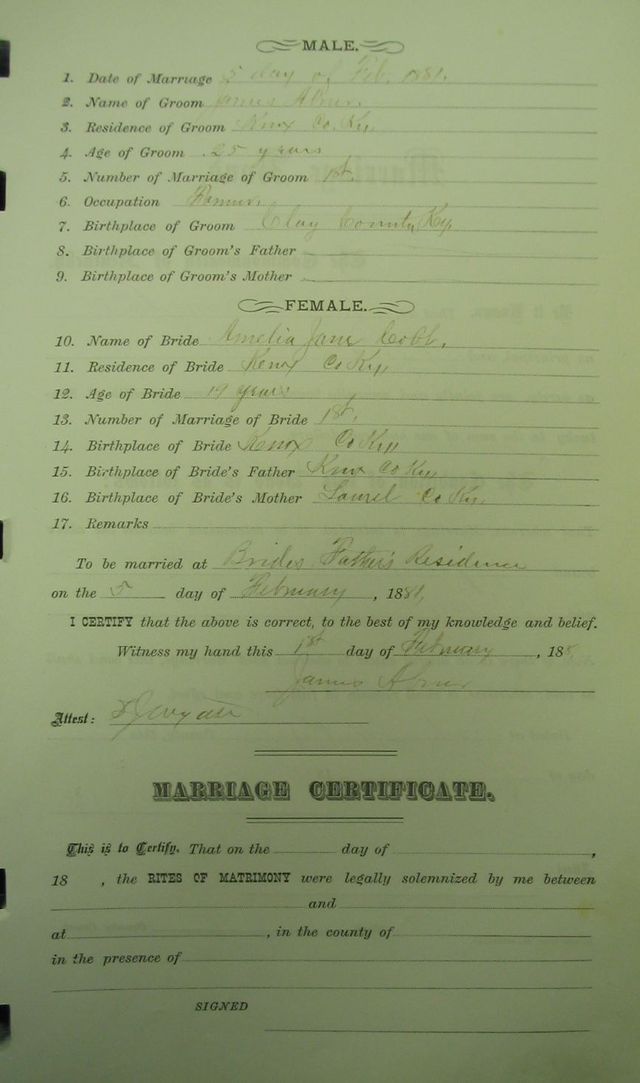 MALE.
1. Date of Marriage 5 day of Feb. 1881.
2. Name of Groom James Abner.
3. Residence of Groom Knox Co. Ky.
4. Age of Groom 25 years
5. Number of Marriage of Groom 1st.
6. Occupation Farmer.
7. Birthplace of Groom Clay County Ky.
8. Birthplace of Groom's Father
9. Birthplace of Groom's Mother
FEMALE.
10. Name of Bride Amelia Jane Cobb.
11. Residence of Bride Knox Co Ky
12. Age of Bride 19 years
13. Number of Marriage of Bride 1st.
14. Birthplace of Bride Knox Co Ky
15. Birthplace of Bride's Father Knox Co Ky
16. Birthplace of Bride's Mother Laurel Co Ky.
17. Remarks
To be married at Brides Father's Residence
on the 5 day of February, 1881,
I CERTIFY that the above is correct, to the best of my knowledge and belief.
Witness my hand this 1st day of February, 188
James Abner
Attest:
MARRIAGE CERTIFICATE.
This is to Certify. That on the day of ,
18 , the RITES OF MATRIMONY were legally solemnized by me between
and
at , in the county of
in the presence of
SIGNED